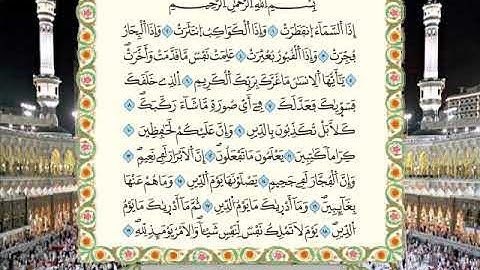 بِسْمِ اللَّهِ الرَّحْمَٰنِ الرَّحِيمِ
إِذَا السَّمَاءُ انفَطَرَتْ ١ وَإِذَا الْكَوَاكِبُ انتَثَرَتْ ٢ وَإِذَا الْبِحَارُ
فُجِّرَتْ ٣ وَإِذَا الْقُبُورُ بُعْثِرَتْ ٤ عَلِمَتْ نَفْسٌ مَّا قَدَّمَتْ وَأَخَّرَتْ ٥
يَا أَيُّهَا الْإِنسَانُ مَا غَرَّكَ بِرَبِّكَ الْكَرِيمِ ٦ الَّذِي خَلَقَكَ
فَسَوَّاكَ فَعَدَلَكَ ٧ فِي أَيِّ صُورَةٍ مَّا شَاءَ رَكَّبَكَ ٨
كَلَّا بَلْ تُكَذِّبُونَ بِالدِّينِ ٩ وَإِنَّ عَلَيْكُمْ لَحَافِظِينَ ١٠
كِرَامًا كَاتِبِينَ ١١ يَعْلَمُونَ مَا تَفْعَلُونَ ١٢ إِنَّ الْأَبْرَارَ لَفِي نَعِيمٍ ١٣
وَإِنَّ الْفُجَّارَ لَفِي جَحِيمٍ ١٤ يَصْلَوْنَهَا يَوْمَ الدِّينِ ١٥ وَمَا هُمْ عَنْهَا
بِغَائِبِينَ ١٦ وَمَا أَدْرَاكَ مَا يَوْمُ الدِّينِ ١٧ ثُمَّ مَا أَدْرَاكَ مَا يَوْمُ
الدِّينِ ١٨ يَوْمَ لَا تَمْلِكُ نَفْسٌ لِّنَفْسٍ شَيْئًا وَالْأَمْرُ يَوْمَئِذٍ لِّلَّهِ ١٩